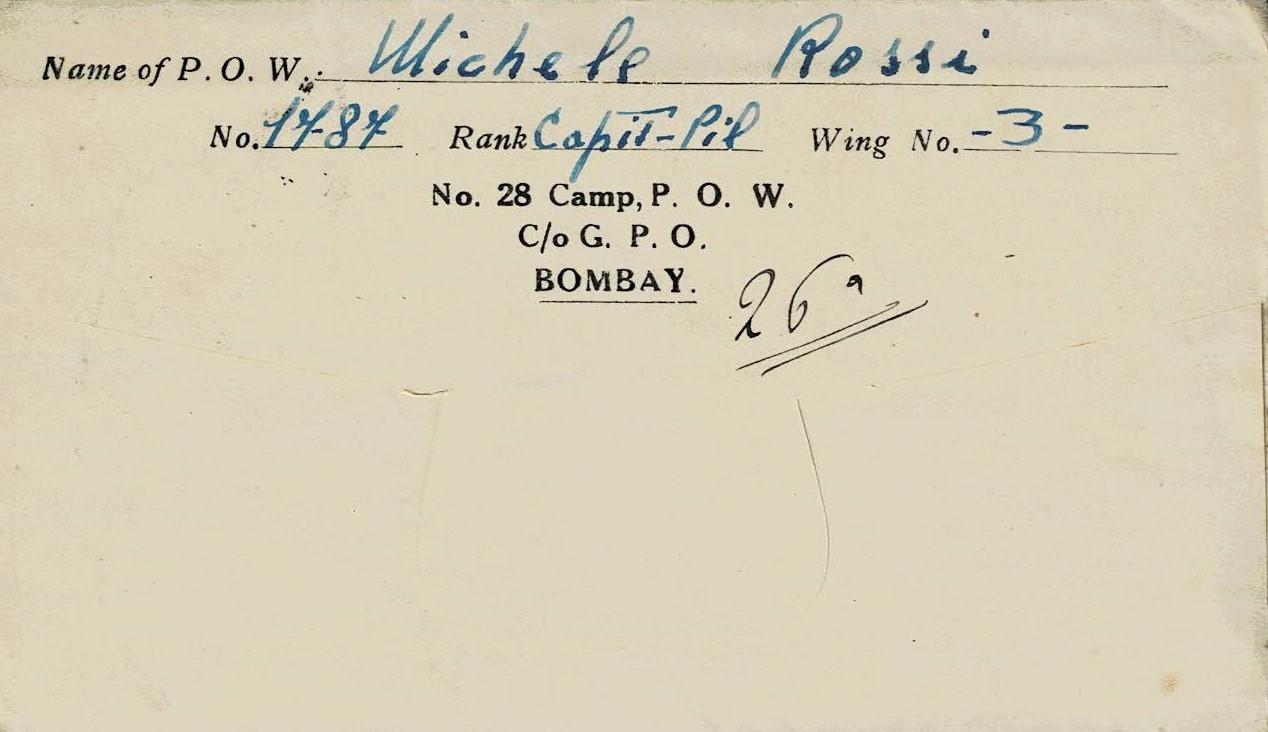 Name of P. O. W.: Michele Rossi
No. 1787 Rank Capit-Pil Wing No. -3-
No. 28 Camp, P. O. W.
C/o G. P. O.
BOMBAY.
26ª